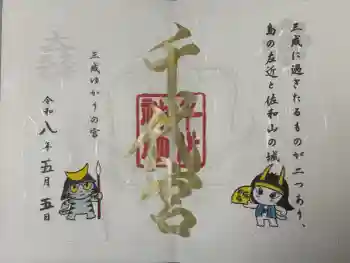 三成に過ぎたるものが二つあり、
島の左近と佐和山の城
千代宮
三成ゆかりの宮
令和八年五月五日